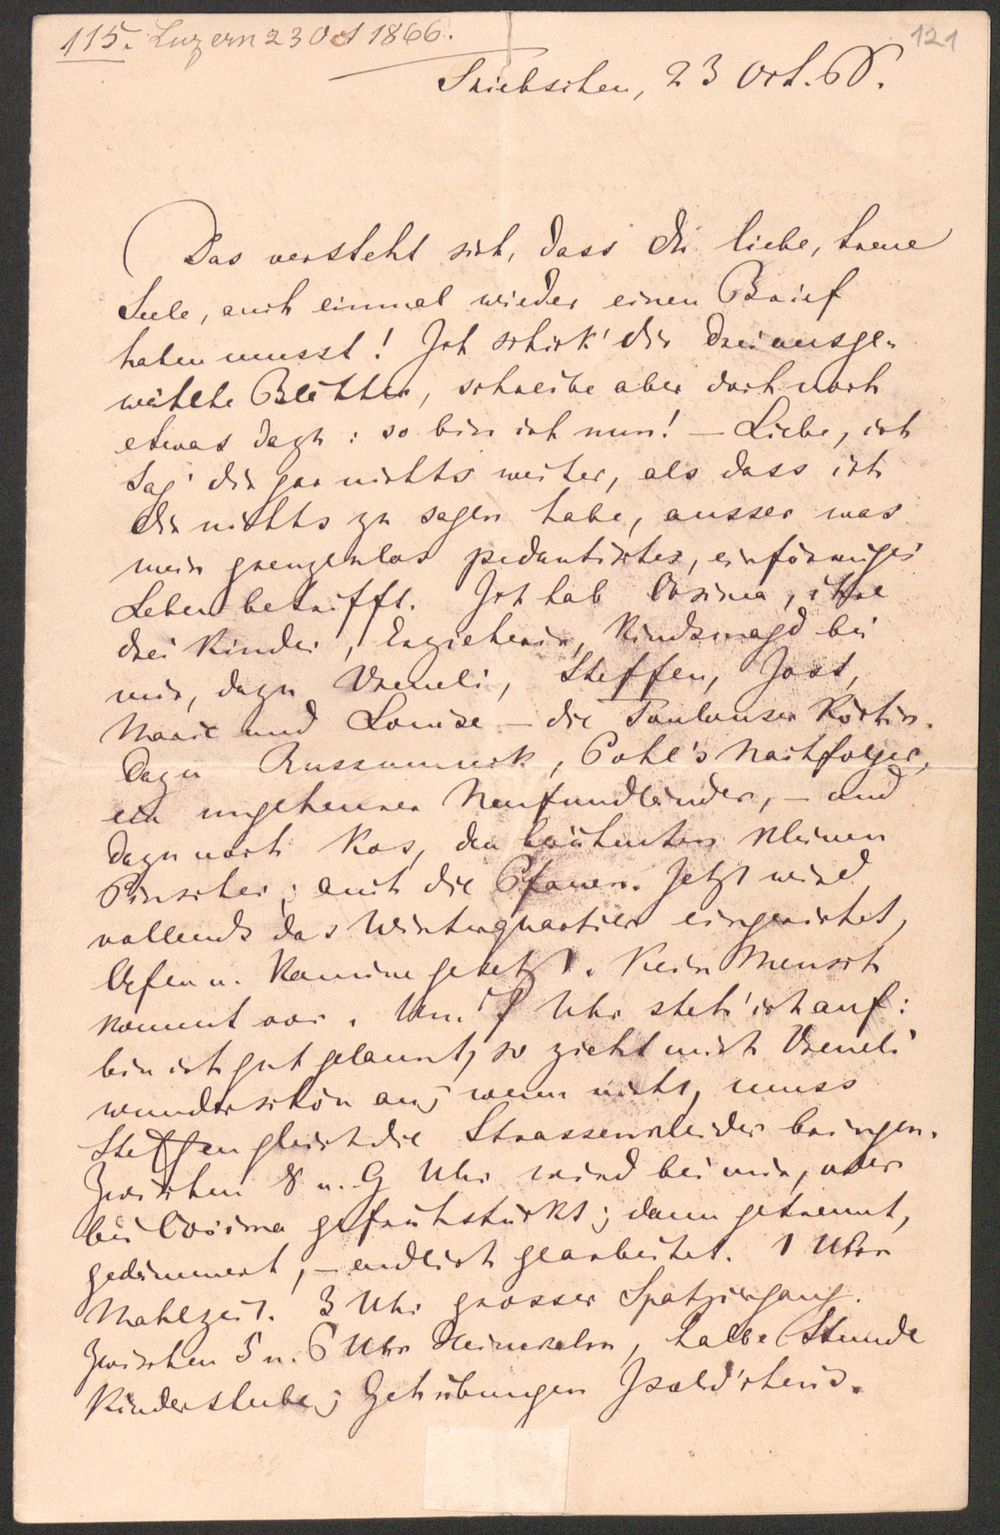 115. Luzern 23 Oct 1866.
121
Triebschen, 23 Oct. 66.
Das versteht sich, dass Du liebe, treue
Seele, auch einmal wieder einen Brief
haben musst! Ich schick' dir drei ausge-
wählte Blätter, schreibe aber doch noch
etwas dazu: so bin ich nun! – Liebe, ich
sag' dir gar nichts weiter, als dass ich
dir nichts zu sagen habe, ausser was
mein grenzenlos pedantisches, einförmiges
Leben betrifft. Ich hab Cosima, ihre
drei Kinder, Erzieherin, Kindsmagd bei
mir, dazu Vreneli, Steffen, Jost,
Marie und Louise – die Köchin.
Dazu Russumuck, Pohl's Nachfolger,
ein ungeheurer Neufundländer, – und
dazu noch Kos, den berühmten kleinen
Pinscher; auch die Pfauen. Jetzt wird
vollends das Winterquartier eingerichtet,
Oefen u. Kamine gesetzt. Kein Mensch
kommt vor. Um 7 Uhr steh' ich auf:
bin ich gut gelaunt, so zieht mich Vreneli
wunderschön an; wenn nicht, muss
Steffen gleich die Strassenkleider bringen.
Zwischen 8 u. 9 Uhr wird bei mir, oder
bei Cosima gefrühstückt; dann getrennt,
gedämmert, – endlich gearbeitet. 1 Uhr
Mahlzeit. 3 Uhr grosser Spatziergang.
Zwischen 5 u. 6 Uhr Heimkehr, halbe Stunde
Kinderstube; Gehübungen Isold'chens.